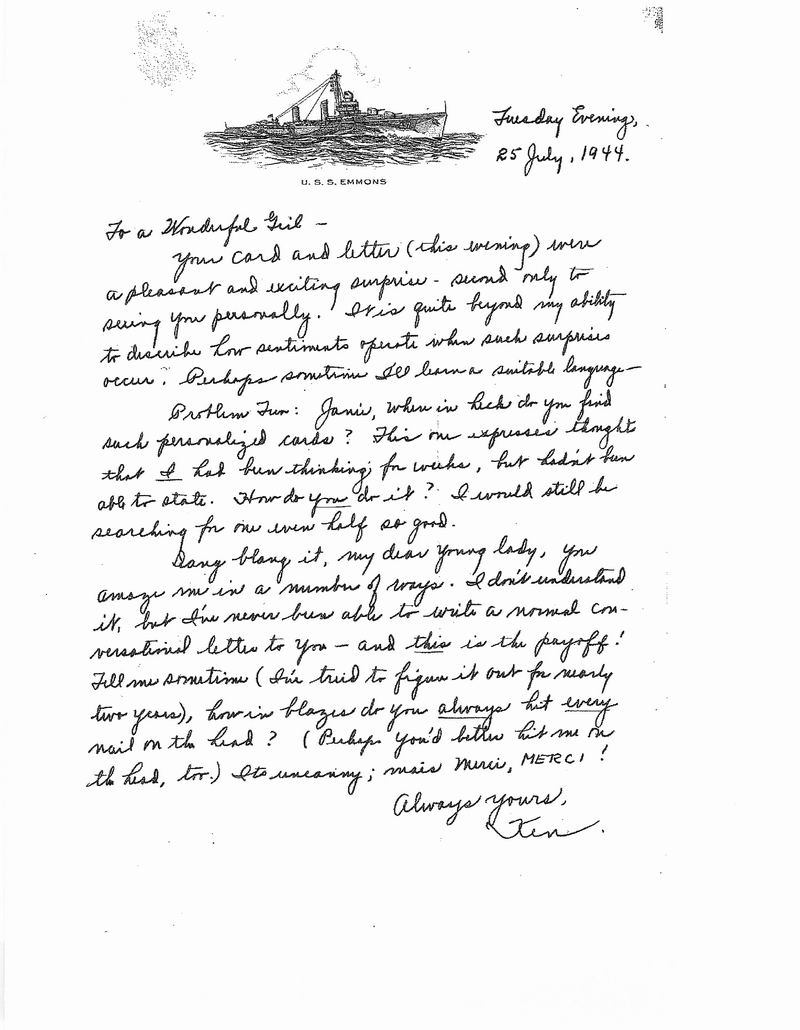 Tuesday Evening,
25 July, 1944.
U. S. S. EMMONS
To a Wonderful Girl –
Your card and letter (this evening) were
a pleasant and exciting surprise - second only to
seeing you personally. It is quite beyond my ability
to describe how sentiments operate when such surprises
occur. Perhaps sometime I'll learn a suitable language –
Problem Two: Janie, when in heck do you find
such personalized cards? This one expresses thought
that I had been thinking for weeks, but hadn't been
able to state. How do you do it? I would still be
searching for one even half so good.
Dang blang it, my dear young lady, you
amaze me in a number of ways. I don't understand
it, but I've never been able to write a normal con-
versational letter to you – and this is the payoff!
Tell me sometime (I've tried to figure it out for nearly
two years), how in blazes do you always hit every
nail on the head? (Perhaps you'd better hit me on
the head, too.) Its uncanny; mais Merci, MERCI!
Always yours,
Ken.